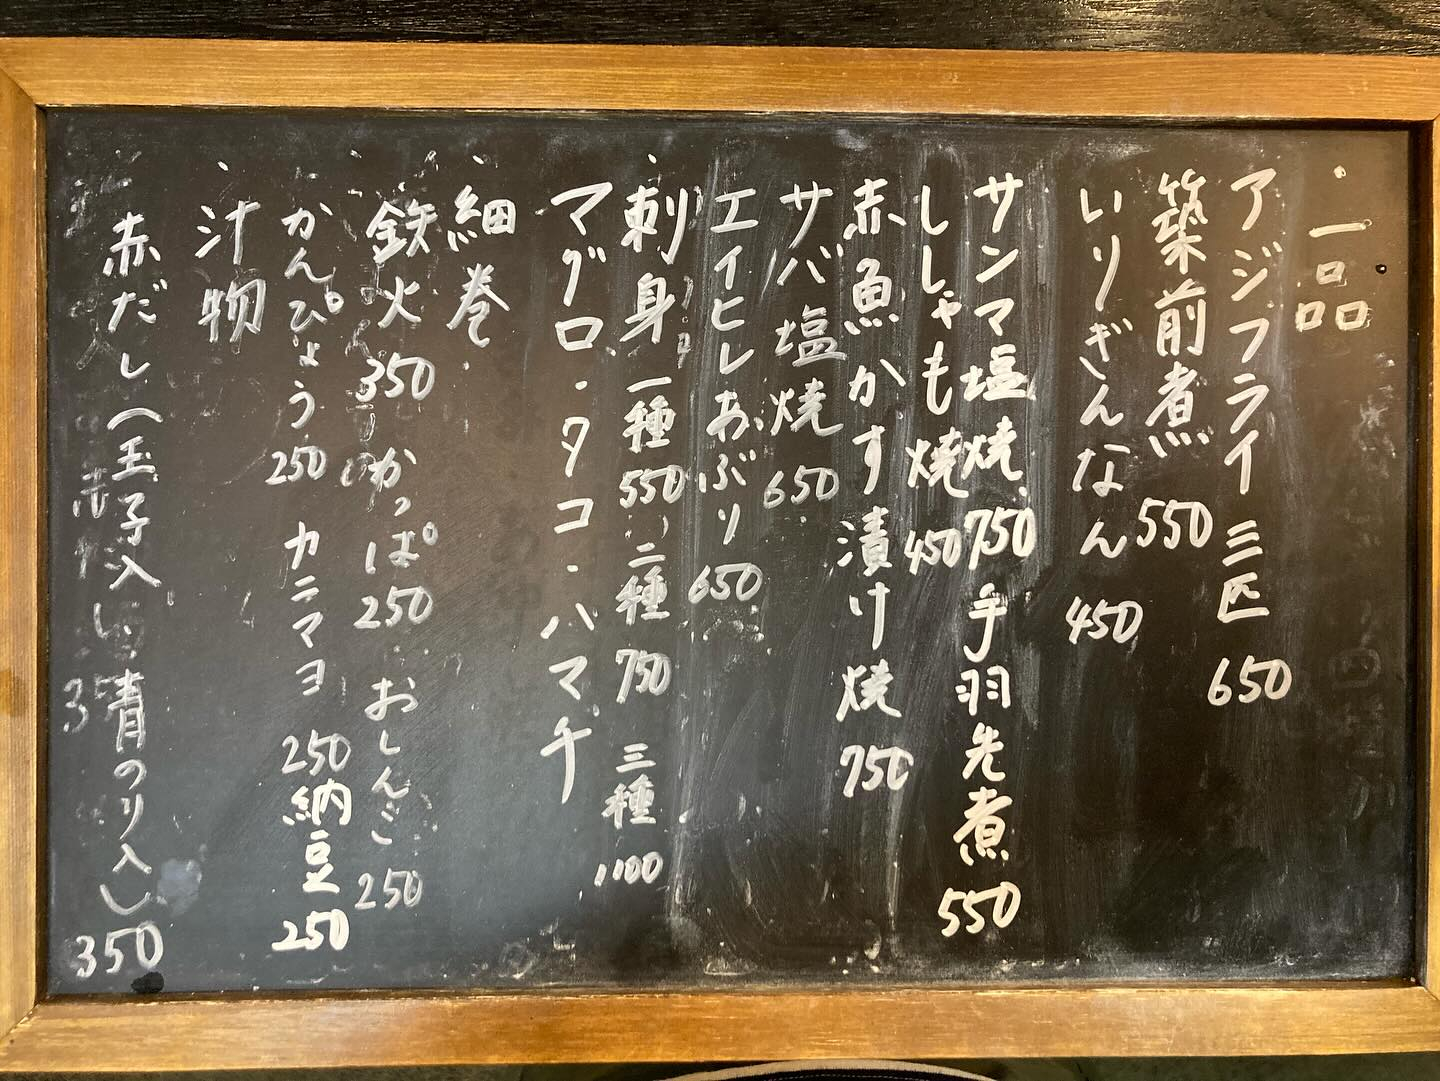 ・一品
アジフライ 三匹 650
築前煮 550
いりぎんなん 450
サンマ塩焼 750 手羽先煮 550
ししゃも焼 450
赤魚かす漬け焼 750
サバ塩焼 650
エイヒレあぶり 650
・刺身 一種 550 二種 750 三種 1100
マグロ・タコ・ハマチ
・細巻
鉄火 350 かっぱ 250 おしんこ 250
かんぴょう 250 カニマヨ 250 納豆 250
・汁物
赤だし(玉子入い 青のり入い 350